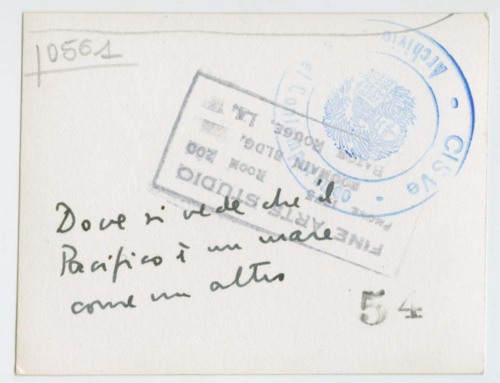 10561
Archivio
CISVe
FINE ARTS STUDIO
ROOM 200
ROUMAIN BLDG.
BATON ROUGE, LA.
Dove si vede che il
Pacifico è un mare
come un altro
54